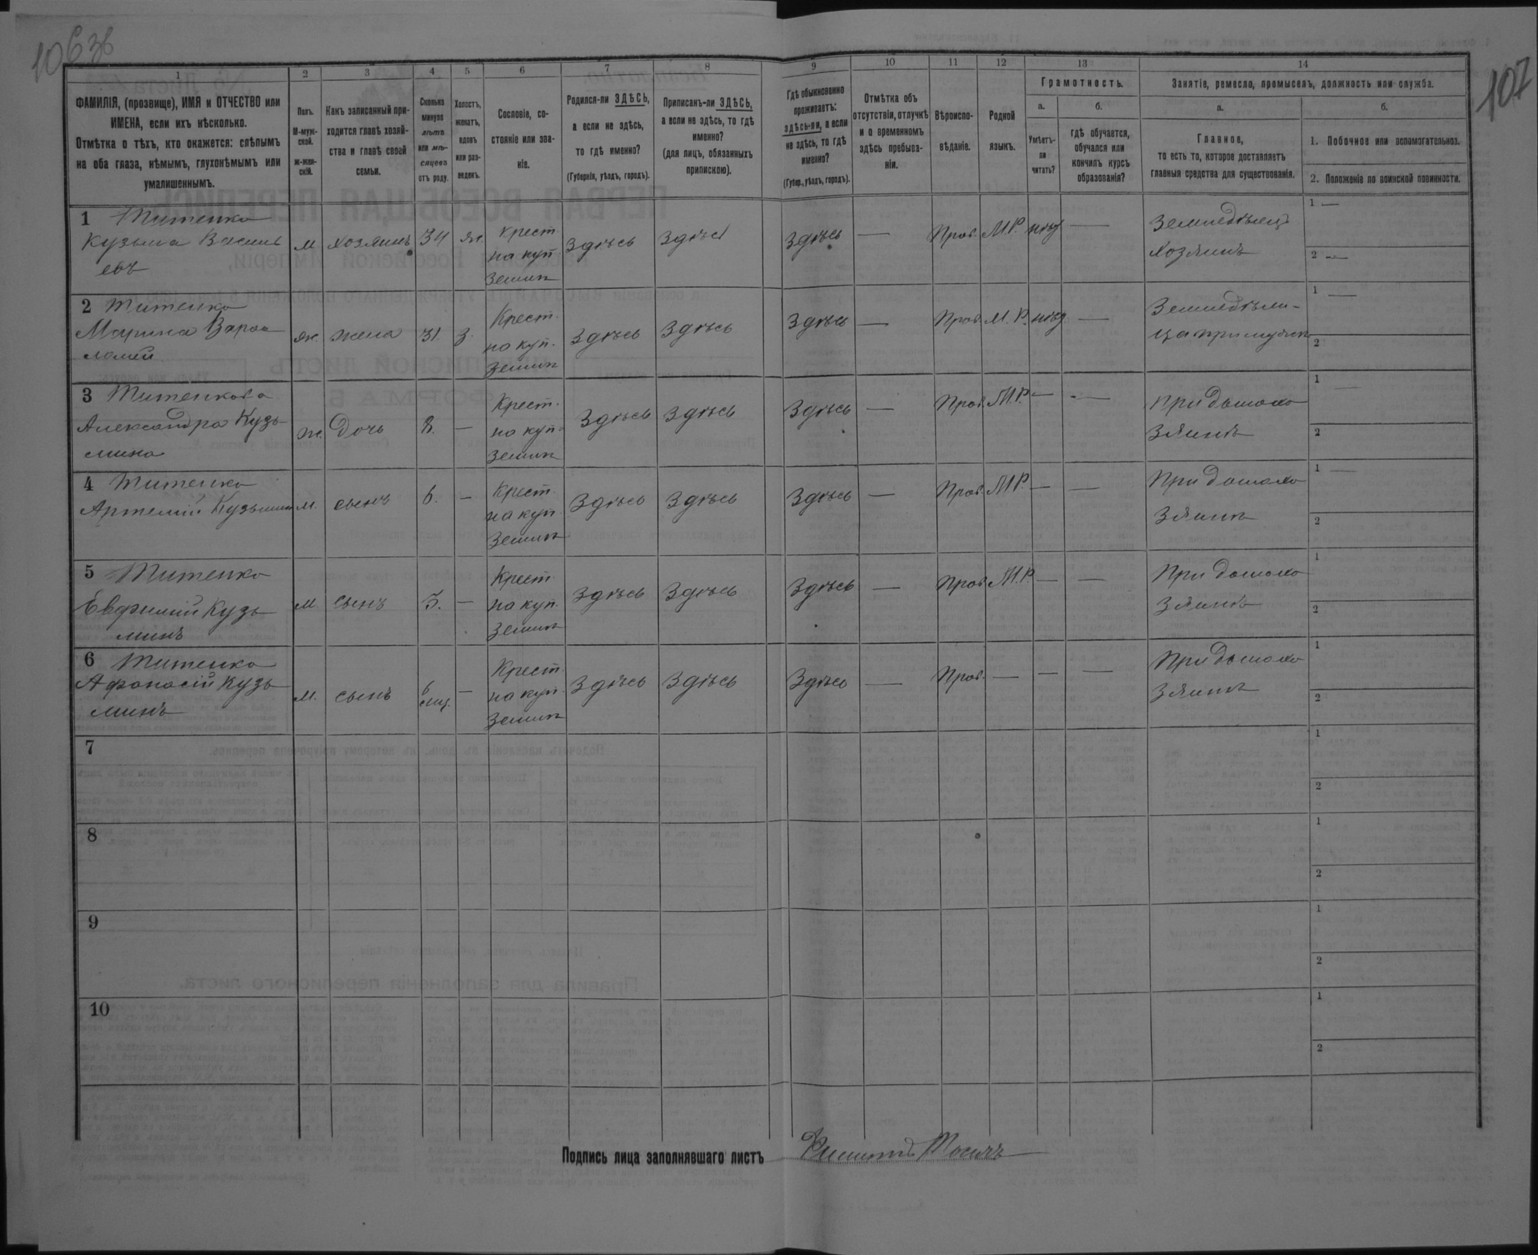 106 об
107
1
2
3
4
5
6
7
8
9
10
11
12
13
14
ФАМИЛІЯ, (прозвище), ИМЯ и ОТЧЕСТВО или
ИМЕНА, если ихъ нѣсколько.
Отмѣтка о тѣхъ, кто окажется: слѣпымъ
на оба глаза, нѣмымъ, глухонѣмымъ или
умалишеннымъ.
Полъ.
М-муж-
ской.
Ж-жен-
скій.
Какъ записанный при-
ходится главѣ хозяй-
ства и главѣ своей
семьи.
Сколько
минуло
лѣтъ
или мѣ-
сяцевъ
отъ роду.
Холостъ,
женатъ,
вдовъ
или раз-
веденъ.
Сословіе, со-
стояніе или зва-
ніе.
Родился-ли ЗДѢСЬ,
а если не здѣсь,
то гдѣ именно?
(Губернія, уѣздъ, городъ).
Приписанъ-ли ЗДѢСЬ,
а если не здѣсь, то гдѣ
именно?
(для лицъ, обязанныхъ
припискою).
Гдѣ обыкновенно
проживаетъ:
здѣсь-ли, а если
не здѣсь, то гдѣ
именно?
(Губер., уѣздъ, городъ).
Отмѣтка объ
отсутствіи, отлучкѣ
и о временномъ
здѣсь пребыва-
ніи.
Вѣроиспо-
вѣданіе.
Родной
языкъ.
Грамотность.
а.
Умѣетъ-
ли
читать?
б.
гдѣ обучается,
обучался или
кончилъ курсъ
образованія?
Занятіе, ремесло, промыселъ, должность или служба.
а.
Главное,
то есть то, которое доставляетъ
главныя средства для существованія.
б.
1. Побочное или вспомогательное.
2. Положеніе по воинской повинности.
1 Титенко
Кузьма Василь
евъ
м
хозяинъ
34
ж.
Крест
на куп
земли
Здѣсь
Здѣсь
Здѣсь
—
Прав.
М.Р.
нѣт
—
Земледѣлец
хозяинъ
1 —
2 —
2 Титенко
Марина Варѳо
ломей
ж.
жена
31
з.
Крест.
на куп.
земли
Здѣсь
Здѣсь
Здѣсь
—
Прав.
М.Р.
нѣт
—
1 —
2
3 Титенкова
Александра Кузь
мина
ж.
дочь
8.
—
Крест.
на куп.
земли
Здѣсь
Здѣсь
Здѣсь
—
Прав.
М.Р.
—
—
При дѣтахо
зяинѣ
1 —
2
4 Титенко
Артемій Кузьминъ
м.
сынъ
6.
—
Крест
на куп
земли
Здѣсь
Здѣсь
Здѣсь
—
Прав.
М.Р.
—
—
1 —
2
5 Титенко
Евфимій Кузь
минъ
м.
сынъ
3.
—
Крест
на куп.
земли
Здѣсь
Здѣсь
Здѣсь
—
Прав.
М.Р.
—
—
1
2
6 Титенко
Афонасій Кузь
минъ
м.
сынъ
6
мѣс.
—
Крест
на куп
земли
Здѣсь
Здѣсь
Здѣсь
—
Прав.
—
—
—
1
2
7
1
2
8
1
2
9
1
2
10
1
2
Подпись лица заполнявшаго листъ